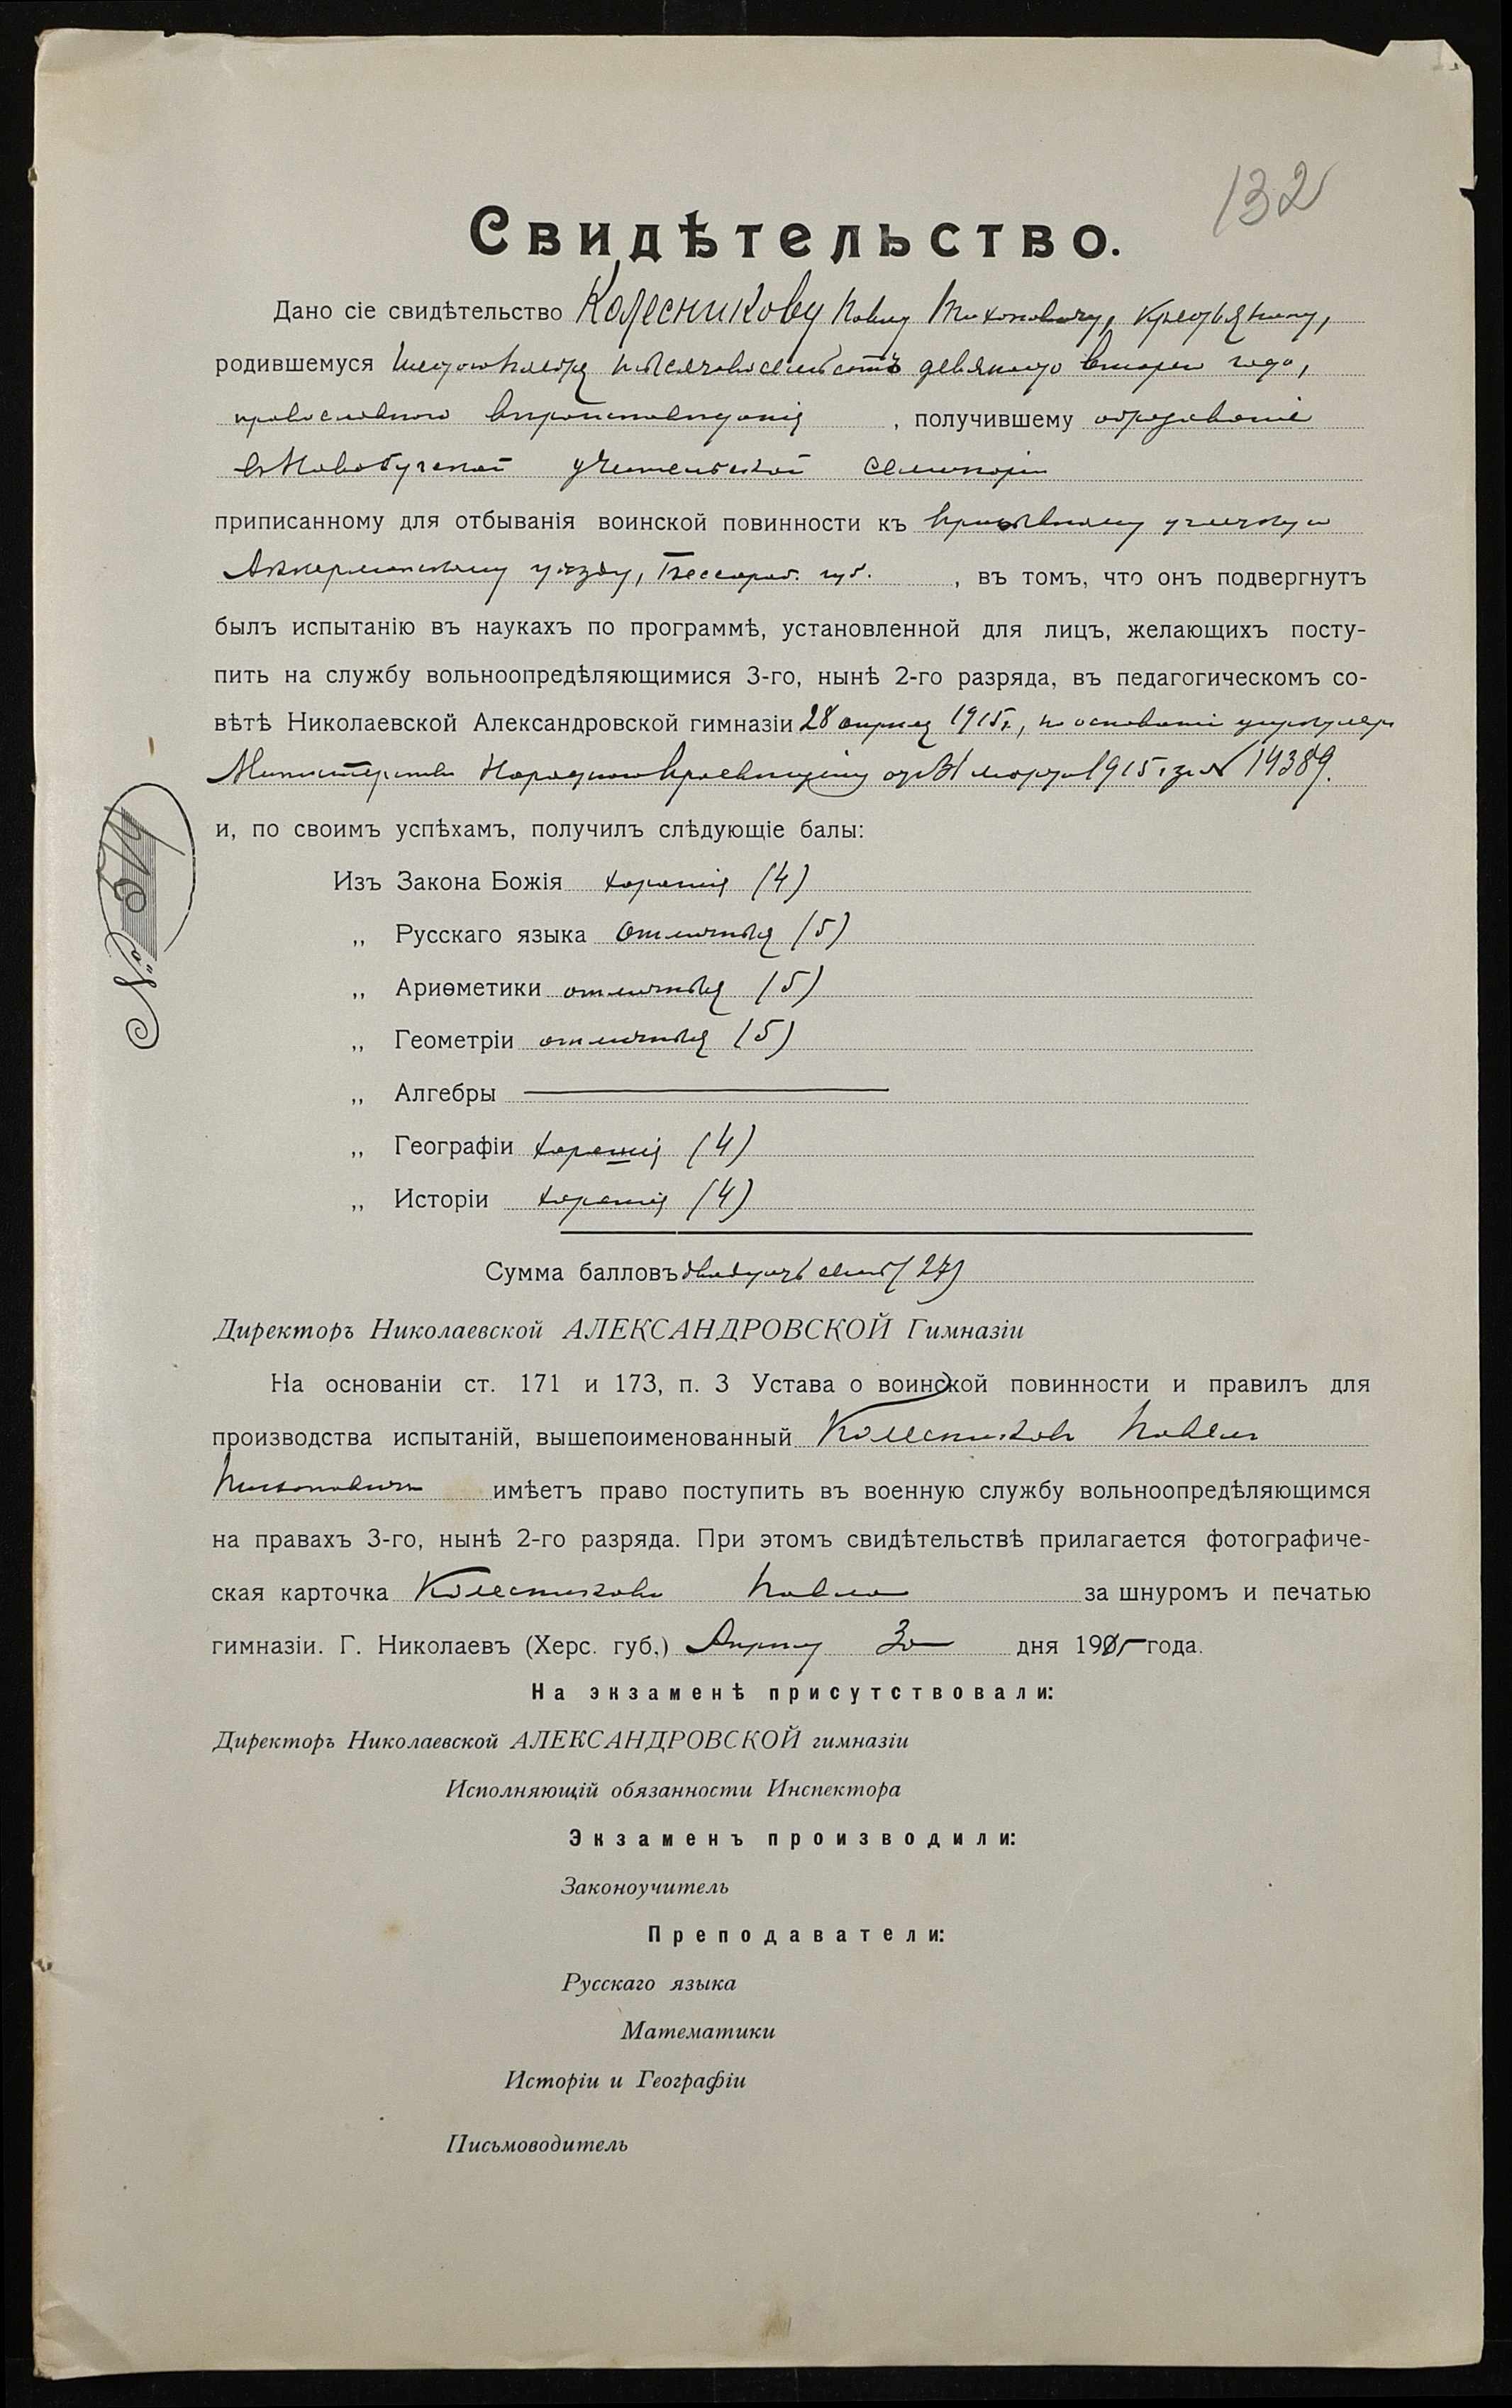 132
Свидѣтельство.
Дано сіе свидѣтельство Колесникову Павлу Тихоновичу, крестьянину,
родившемуся тысяча восемьсотъ девяносто второго года,
православного вѣроисповѣданія, получившему образованіе
въ Новобугской учительской семинаріи
приписанному для отбыванія воинской повинности къ призывному участку
Аккерманскому уѣзду, Бессараб. губ., въ томъ, что онъ подвергнутъ
былъ испытанію въ наукахъ по программѣ, установленной для лицъ, желающихъ посту-
пить на службу вольноопредѣляющимися 3-го, нынѣ 2-го разряда, въ педагогическомъ со-
вѣтѣ Николаевской Александровской гимназіи 28 апрѣля 1915г., на основаніи циркуляра
Министерства Народного Просвѣщенія отъ марта 1915 г. за № 14389.
и, по своимъ успѣхамъ, получилъ слѣдующіе балы:
№
Изъ Закона Божія хорошія (4)
„ Русскаго языка отличныя (5)
„ Ариѳметики отличныя (5)
„ Геометріи отличныя (5)
„ Алгебры
„ Географіи хорошія (4)
„ Исторіи хорошія (4)
Сумма балловъ двадцать семь (27)
Директоръ Николаевской АЛЕКСАНДРОВСКОЙ Гимназіи
На основаніи ст. 171 и 173, п. 3 Устава о воинской повинности и правилъ для
производства испытаній, вышепоименованный Колесниковъ Павелъ
Тихоновичъ имѣетъ право поступить въ военную службу вольноопредѣляющимся
на правахъ 3-го, нынѣ 2-го разряда. При этомъ свидѣтельствѣ прилагается фотографиче-
ская карточка Колесникова Павла за шнуромъ и печатью
гимназіи. Г. Николаевъ (Херс. губ.) Апрѣля 30 дня 1915 года.
На экзаменѣ присутствовали:
Директоръ Николаевской АЛЕКСАНДРОВСКОЙ гимназіи
Исполняющій обязанности Инспектора
Экзаменъ производили:
Законоучитель
Преподаватели:
Русскаго языка
Математики
Исторіи и Географіи
Письмоводитель